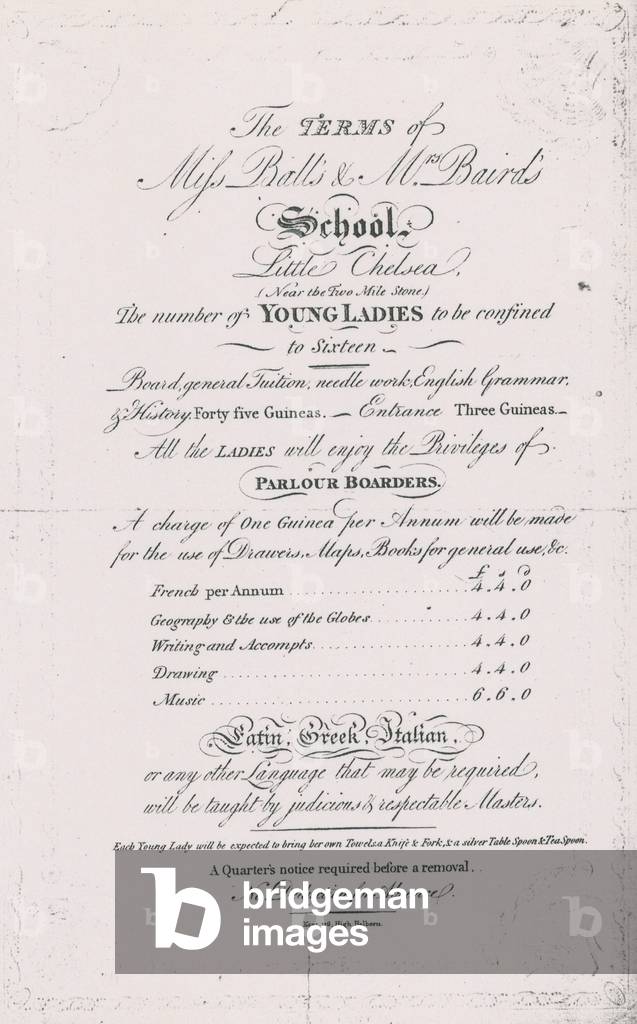 The TERMS of
Miss Ball's & Mrs Baird's
School.
Little Chelsea,
(Near the Two Mile Stone.)
The number of YOUNG LADIES to be confined
to Sixteen
Board, general Tuition, needle work, English Grammar,
& History, Forty five Guineas. — Entrance Three Guineas. —
All the LADIES will enjoy the Privileges of
PARLOUR BOARDERS.
A charge of One Guinea per Annum will be made
for the use of Drawers, Maps, Books for general use, &c.
£ s d
French per Annum 4.4.0
Geography & the use of the Globes 4.4.0
Writing and Accompts 4.4.0
Drawing 4.4.0
Music 6.6.0
Latin, Greek, Italian,
or any other Language that may be required,
will be taught by judicious & respectable Masters.
Each Young Lady will be expected to bring her own Towels, a Knife & Fork, & a silver Table Spoon & Tea Spoon.
A Quarter's notice required before a removal.
High Holborn.
b bridgeman
images